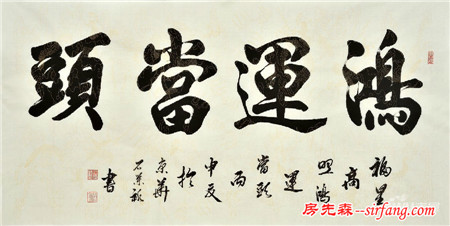 鴻運當頭
福星
高
照鴻
運
當頭
丙
申夏
於
京華
書
房先森--sirfang.com